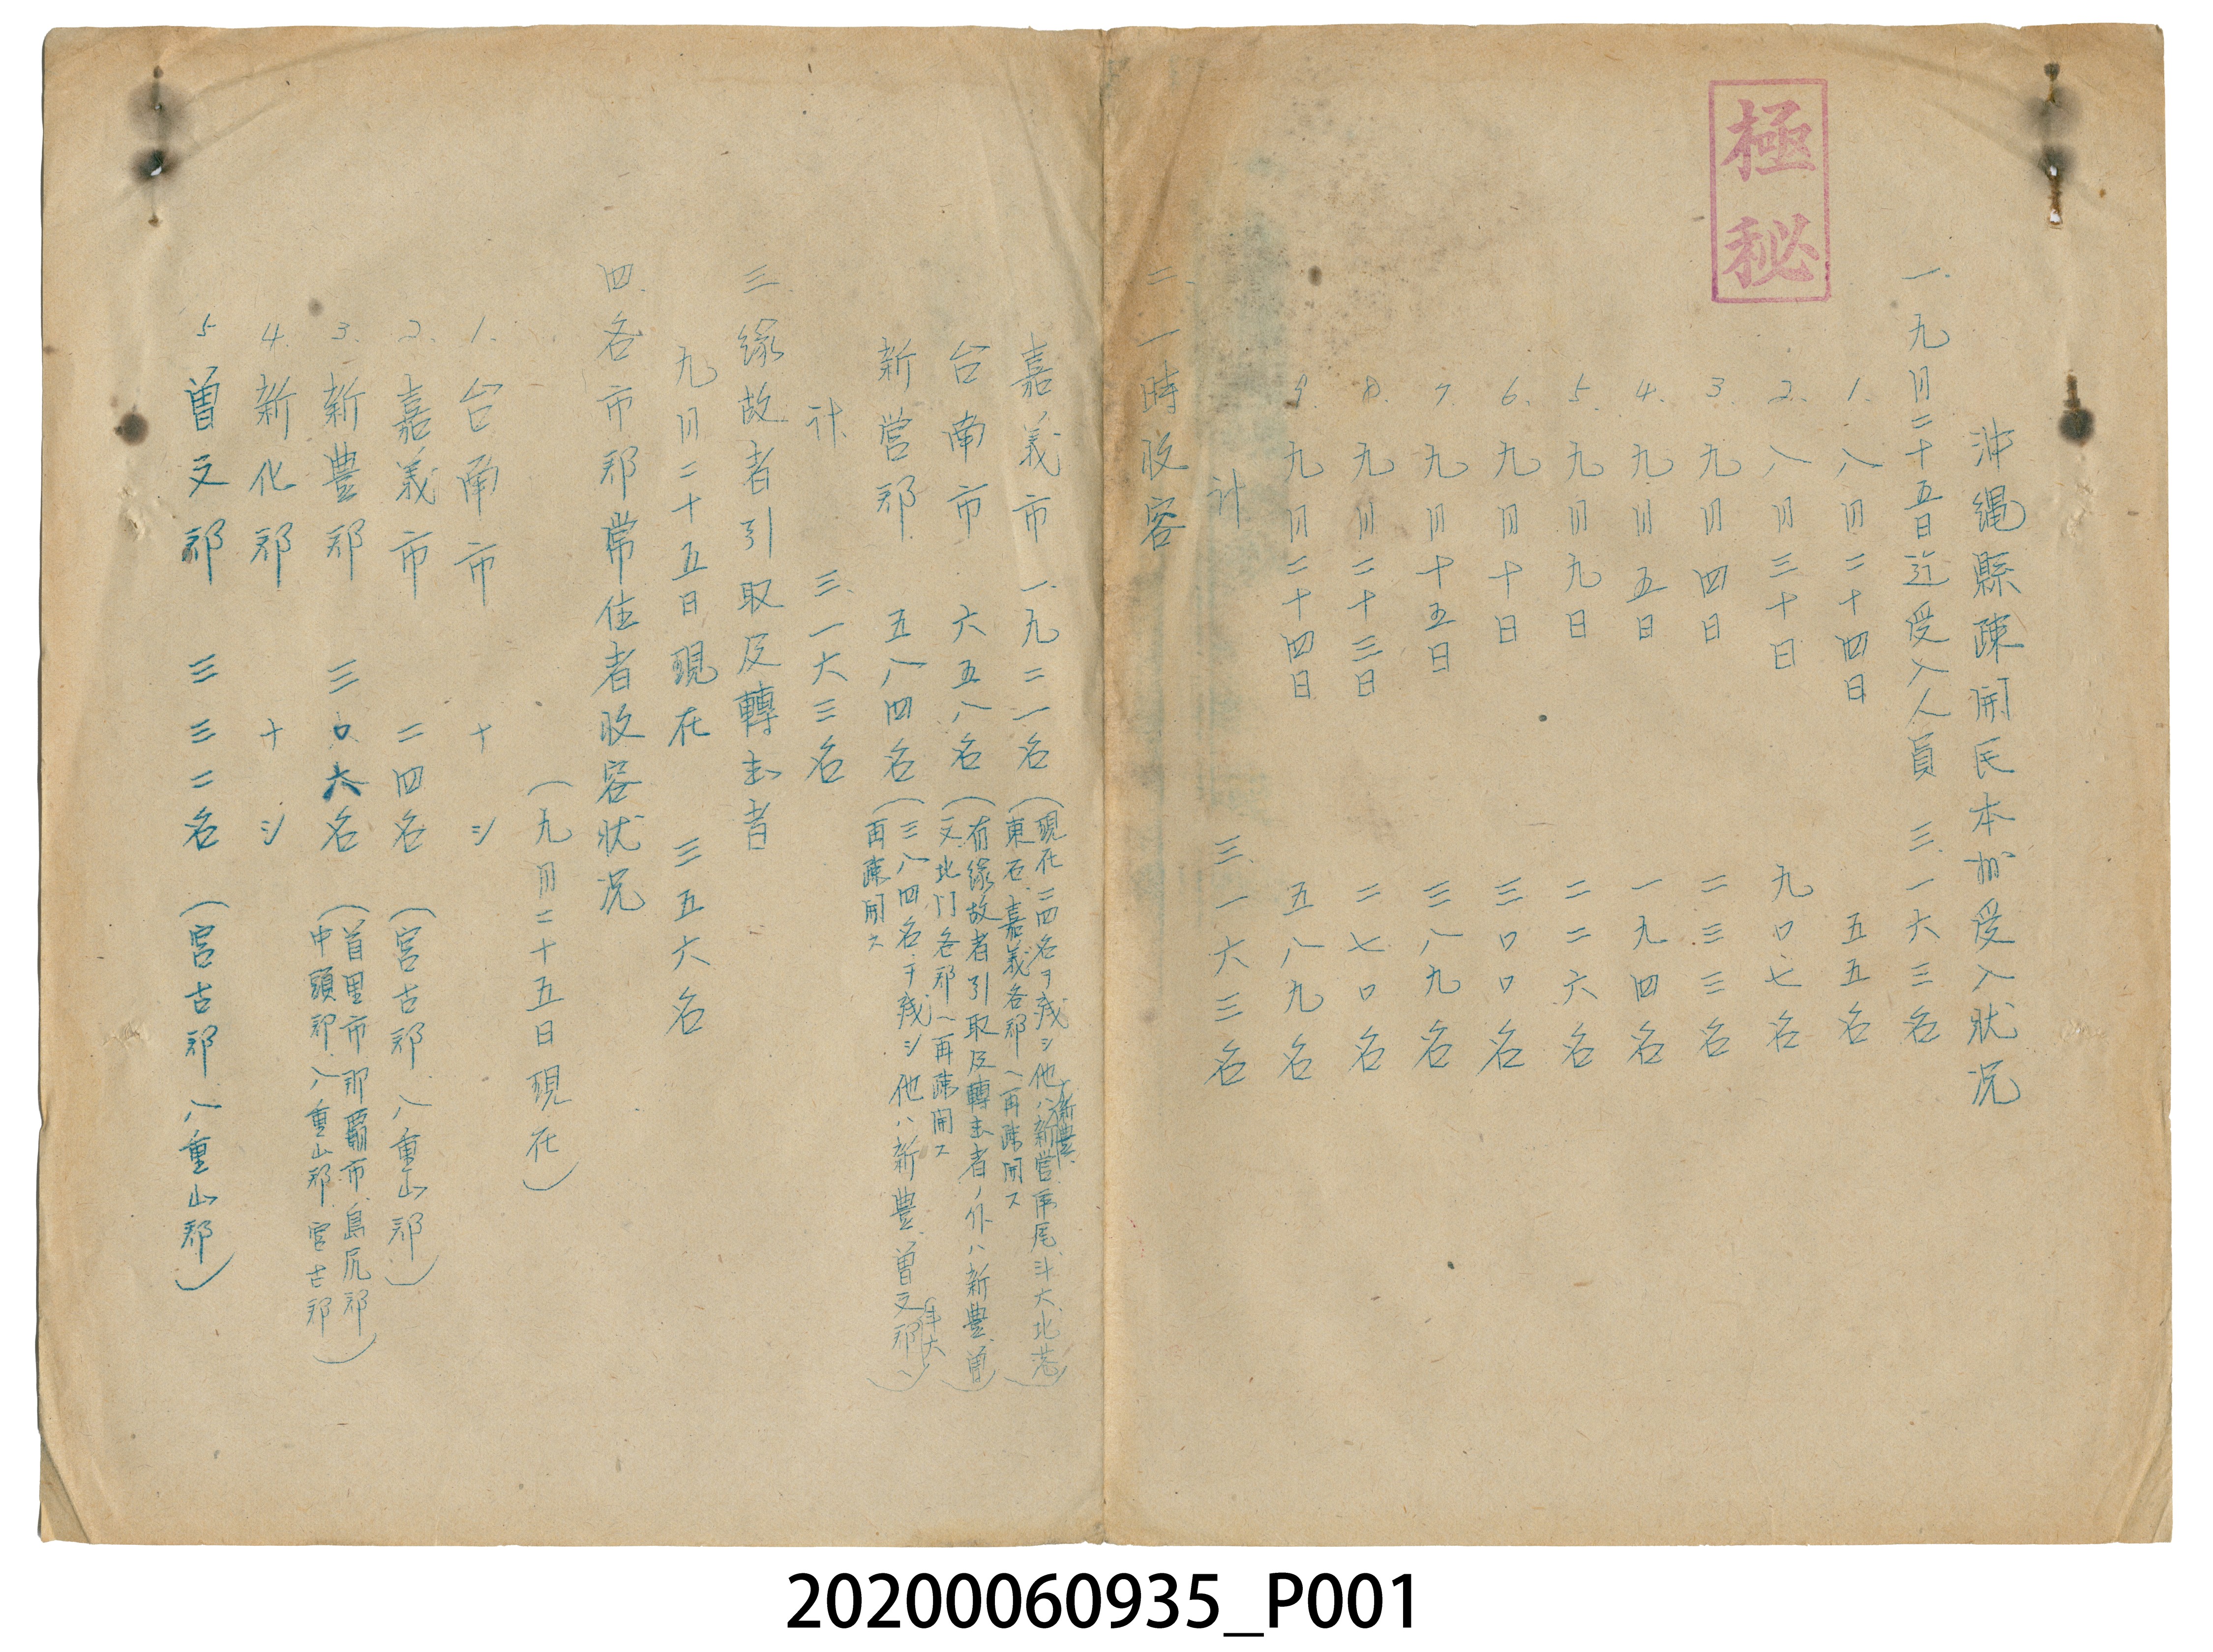 極秘
沖縄縣疎開民本州受入状況
一、九月二十五日迄受入人員 三、一六三名
1. 八月二十四日 五五名
2. 八月三十日 九〇七名
3. 九月四日 二三三名
4. 九月五日 一九四名
5. 九月九日 二二六名
6. 九月十日 三〇〇名
7. 九月十五日 三八九名
8. 九月二十三日 二七〇名
9. 九月二十四日 五八九名
計 三、一六三名
二、一時收容
嘉義市 一、九二一名
(現在二四名ヲ残シ他ハ新営虎尾斗六北港
新豊、
東石、嘉義各郡ヘ再疎開ス)
台南市 六五八名
(有縁故者引取及轉出者ノ外ハ新豊、曽
文、北门各郡ヘ再疎開ス)
新営郡 五八四名
(三八四名ヲ残シ他ハ新豊、曽文郡ヘ
斗六
再疎開ス)
計 三、一六三名
三、縁故者引取及轉出者
九月二十五日現在 三五六名
四、各市郡常住者收容状况
(九月二十五日現在)
1. 台南市 ナシ
2. 嘉義市 二四名 (宮古郡 八重山郡)
3. 新豊郡 三〇六名
(首里市 那覇市 島尻郡
中頭郡 八重山郡 宮古郡)
4. 新化郡 ナシ
5 曽文郡 三三二名 (宮古郡 八重山郡)
20200060935_P001